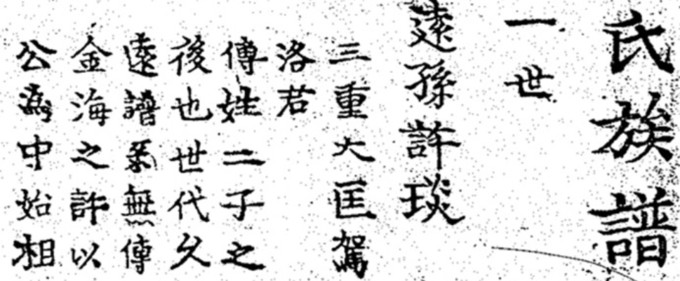 氏族譜
一世
遠孫許琰
三重大匡駕
洛君
傳姓二子之
後也世代久
遠譜系無傳
金海之許以
公為中始相